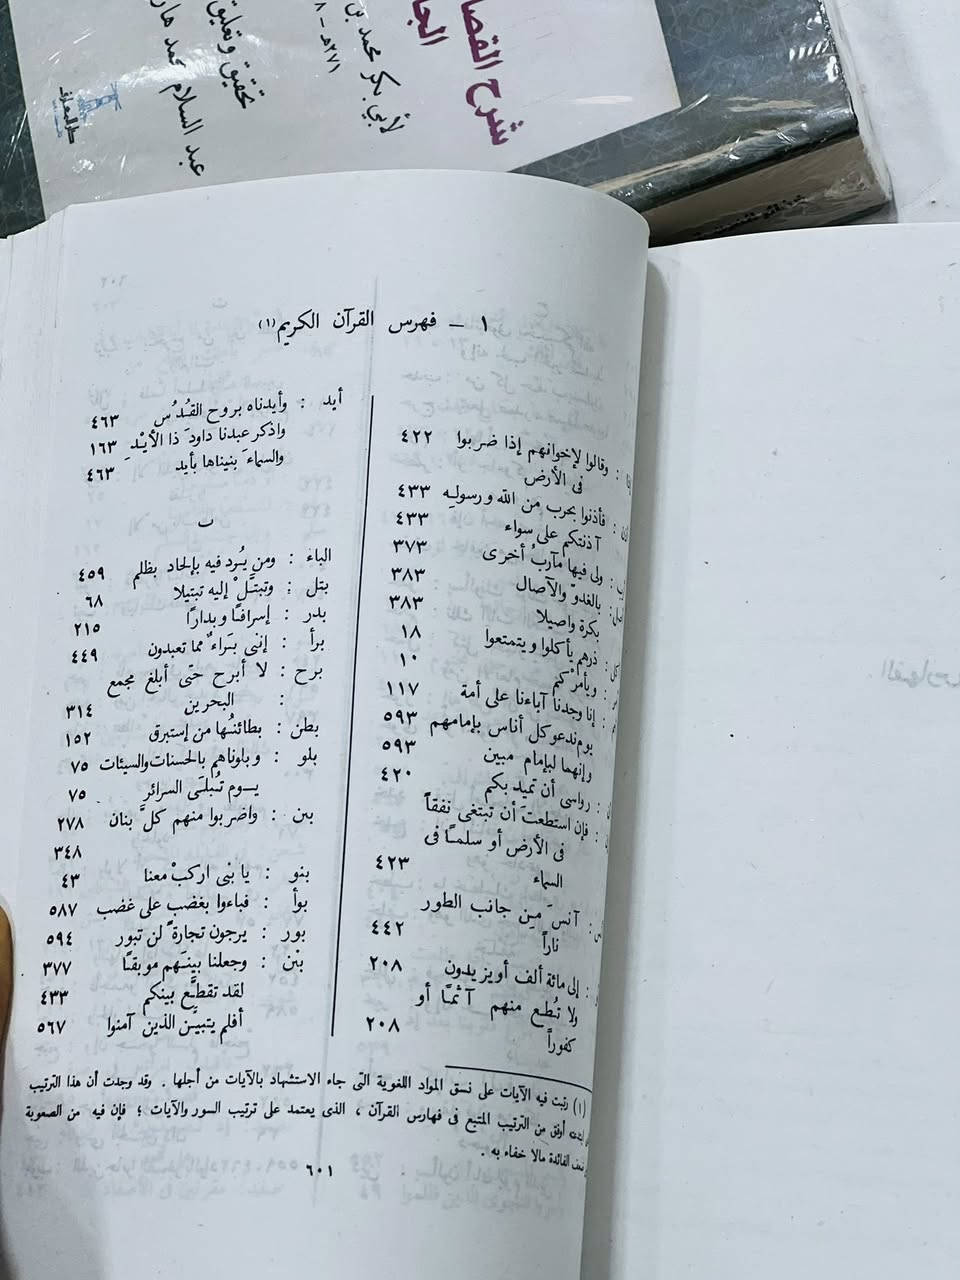 شرح القصا
الجا
لأبي بكر محمد بن
٢٧١هـ - ٨
تحقيق وتعليق
عبد السلام محمد هار
دار المعارف
١ - فهرس القرآن الكريم(١)
: وقالوا لإخوانهم إذا ضربوا
فى الأرض ٤٢٢
: فأذنوا بحرب من الله ورسوله ٤٣٣
آذنتكم على سواء ٤٣٣
: ولى فيها مآرب أخرى ٣٧٣
: بالغدوّ والآصال ٣٨٣
بكرة وأصيلا ٣٨٣
: ذرهم يأكلوا ويتمتعوا ١٨
: ويأمرْكم ١٠
: إنا وجدنا آباءنا على أمة ١١٧
يوم ندعو كل أناس بإمامهم ٥٩٣
وإنهما لبإمام مبين ٥٩٣
: رواسى أن تميد بكم ٤٢٠
: فإن استطعتَ أن تبتغى نفقاً
فى الأرض أو سلمًا فى
السماء ٤٢٣
: آنسَ مِن جانب الطور
ناراً ٤٤٢
: إلى مائة ألف أو يزيدون ٢٠٨
ولا تُطع منهم آثمًا أو
كفوراً ٢٠٨
أيد : وأيدناه بروح القُدُس ٤٦٣
واذكر عبدنا داودَ ذا الأيْدِ ١٦٣
والسماءَ بنيناها بأيد ٤٦٣
ب
الباء : ومن يُرد فيه بإلحاد بظلم ٤٥٩
بتل : وتبتَّلْ إليه تبتيلا ٦٨
بدر : إسرافًا وبدارًا ٢١٥
برأ : إننى بَراءٌ مما تعبدون ٤٤٩
برح : لا أبرح حتّى أبلغ مجمع
: البحرين ٣١٤
بطن : بطائنُها من إستبرق ١٥٢
بلو : وبلوناهم بالحسنات والسيئات ٧٥
يـوم تُبلَى السرائر ٧٥
بنن : واضربوا منهم كلَّ بنان ٢٧٨
٣٤٨
بنو : يا بنى اركبْ معنا ٤٣
بوأ : فباءوا بغضب على غضب ٥٨٧
بور : يرجون تجارةً لن تبور ٥٩٤
بَين : وجعلنا بينَهم موبقًا ٣٧٧
لقد تقطَّع بينكم ٤٣٣
أفلم يتبيَّن الذين آمنوا ٥٦٧
(١) رتبت فيه الآيات على نسق المواد اللغوية التى جاء الاستشهاد بالآيات من أجلها . وقد وجدت أن هذا الترتيب
أوفق من الترتيب المتبع فى فهارس القرآن ، الذى يعتمد على ترتيب السور والآيات ؛ فإن فيه من الصعوبة
وضعف الفائدة مالا خفاء به .
٦٠١